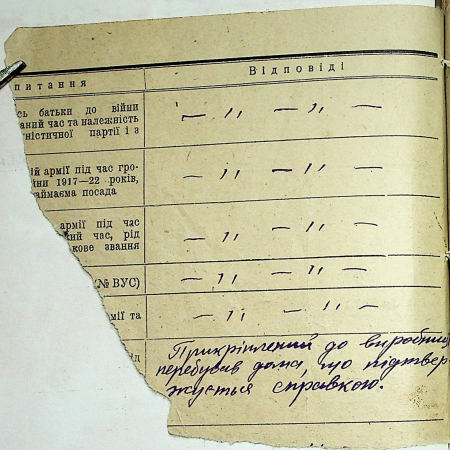 питання
Відповіді
сь батьки до війни
аний час та належність
ністичної партії і з
— " — " —
ій армії під час гро-
йни 1917—22 років,
займаєма посада
— " — " —
армії під час
кий час, рід
кове звання
— " — " —
(№ ВУС)
— " — " —
мії та
— " — " —
ід
Прикріплений до виробниц
перебував дома, що підтвер-
жується справкою.